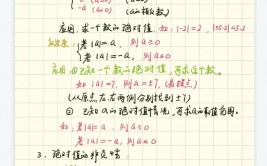 -a (a<0) (a为负数)
应用: 求一个数的绝对值, 如: |-2|=2, |+5.2|=5.2
若|a|=a, 则a≥0
若|a|=-a, 则a≤0
应用: ① 已知一个数的绝对值, 可求这个数.
如: |a|=7, 则a=±7. (易错点)
(从原点左、右两侧分别找到±7)
② 已知a的绝对值情况, 可求a的取值范围.
如: 若|a|=a, 则a≥0
若|a|=-a, 则a≤0
3. 绝对值的非负性